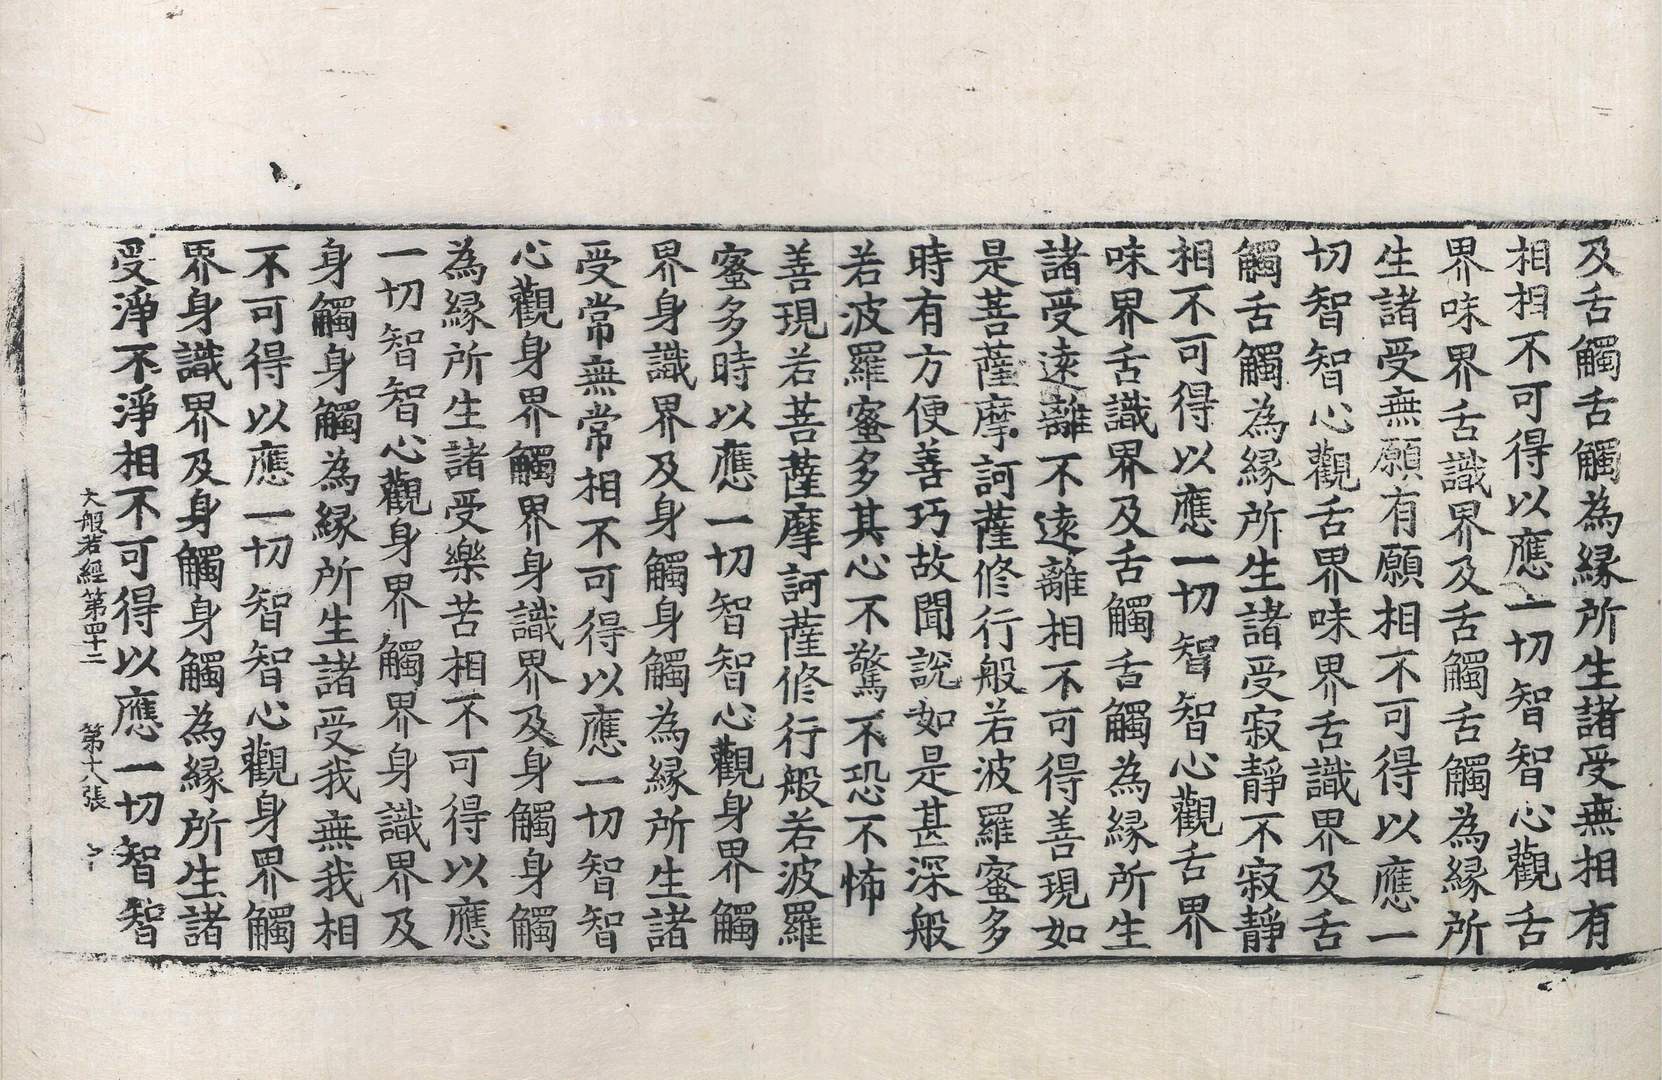 及舌觸舌觸為縁所生諸受無相有
相相不可得以應一切智智心觀舌
界味界舌識界及舌觸舌觸為縁所
生諸受無願有願相不可得以應一
切智智心觀舌界味界舌識界及舌
觸舌觸為縁所生諸受寂靜不寂靜
相不可得以應一切智智心觀舌界
味界舌識界及舌觸舌觸為縁所生
諸受遠離不遠離相不可得善現如
是菩薩摩訶薩修行般若波羅蜜多
時有方便善巧故聞說如是甚深般
若波羅蜜多其心不驚不恐不怖
善現若菩薩摩訶薩修行般若波羅
蜜多時以應一切智智心觀身界觸
界身識界及身觸身觸為縁所生諸
受常無常相不可得以應一切智智
心觀身界觸界身識界及身觸身觸
為縁所生諸受樂苦相不可得以應
一切智智心觀身界觸界身識界及
身觸身觸為縁所生諸受我無我相
不可得以應一切智智心觀身界觸
界身識界及身觸身觸為縁所生諸
受淨不淨相不可得以應一切智智
大般若經第四十二 第十八張